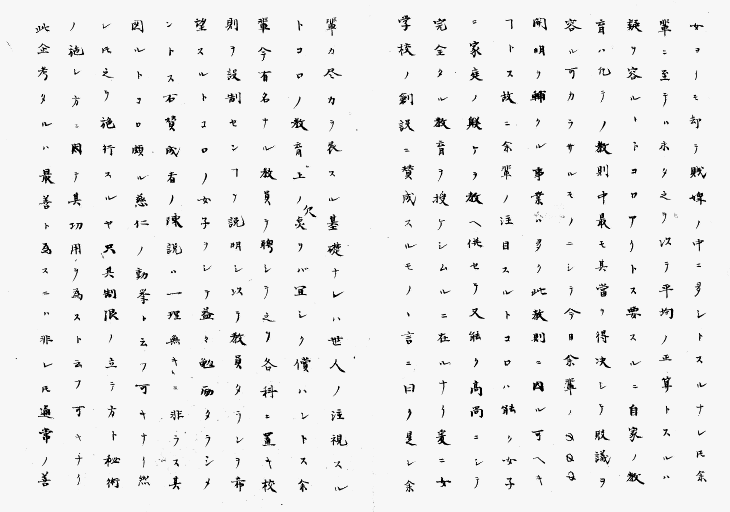 女ヨリモ却テ賎婢ノ中ニ多シトスルナレ𪜈余
輩ニ至テハ未タ之ヲ以テ平均ノ正算トスルハ
疑ヲ容ルヽトコロアリトス要スルニ自家ノ教
育ハ凡テノ教則中最モ其當ヲ得決シテ敗議ヲ
容ル可カラサルモノニシテ今日余輩ノ
開明ヲ輔クル事業ハ多ク此教則ニ因ル可ヘキ
トス故ニ余輩ノ注目スルトコロハ能ク女子
ニ家庭ノ躾ケヲ教ヘ供セ又能ク高尚ニシテ
完全タル教育ヲ授ケシムルニ在ルナリ爰ニ女
学校ノ創設ニ賛成スルモノヽ言ニ曰ク是レ余
輩カ尽力ヲ表スル基礎ナレハ世人ノ注視スル
トコロノ教育上ノ欠ヲハ宜シク償ハントス余
輩今有名ナル教員ヲ聘シテ之ヲ各科ニ置キ校
則ヲ設制センヿヲ説明シ以テ教員タランヲ希
望スルトコロノ女子ヲシテ益々勉励タラシメ
ントス右賛成者ノ陳説ハ一理無キニ非ラス其
因ルトコロ頗ル慈仁ノ動挙ト云フ可キナリ然
レ𪜈之ヲ施行スルヤ只其制限ノ立テ方ト秘術
ノ施シ方ニ因テ其功用ヲ為スト云フ可キナリ
此企考タルハ最善ト為スニハ非レ𪜈通常ノ善